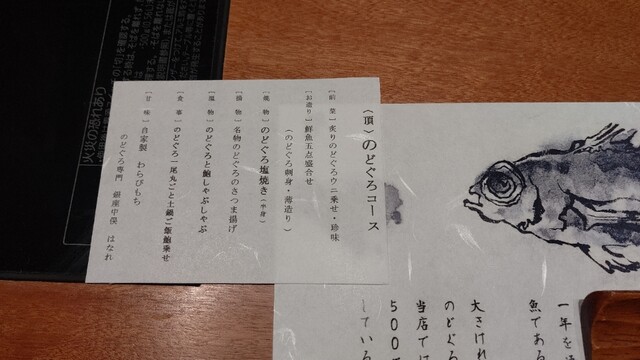 〈頂〉のどぐろコース
［前菜］炙りのどぐろウニ乗せ・珍味
［お造り］鮮魚五点盛合せ
（のどぐろ刺身・薄造り）
［焼物］のどぐろ塩焼き（半身）
［揚物］名物のどぐろのさつま揚げ
［鍋物］のどぐろと鮑しゃぶしゃぶ
［食事］のどぐろ一尾丸ごと土鍋ご飯鮑乗せ
［甘味］自家製 わらびもち
のどぐろ専門 銀座中俣 はなれ
一年を
魚であ
大きけれ
のどぐろ
当店では
500
している
火災の恐れあり